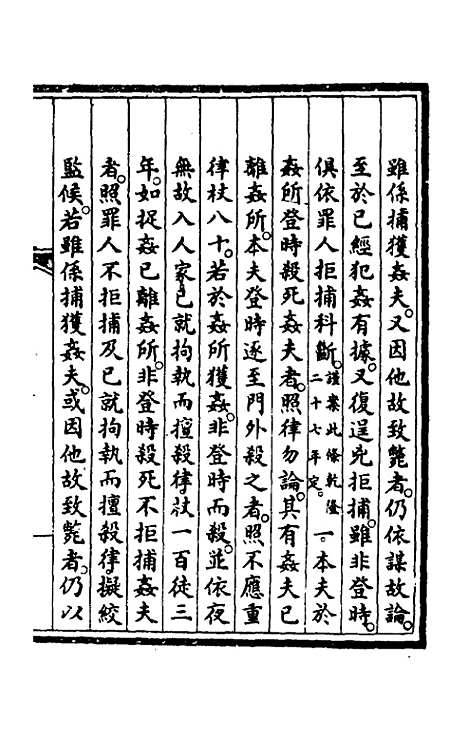 雖係捕獲姦夫。又因他故致斃者。仍依謀故論。
至於已經犯姦有據。又復逞兇拒捕。雖非登時。
俱依罪人拒捕科斷。謹案此條乾隆二十七年定。一本夫於
姦所登時殺死姦夫者。照律勿論。其有姦夫已
離姦所。本夫登時逐至門外殺之者。照不應重
律杖八十。若於姦所獲姦。非登時而殺。並依夜
無故入人家已就拘執而擅殺律。杖一百徒三
年。如捉姦已離姦所。非登時殺死不拒捕姦夫
者。照罪人不拒捕及已就拘執而擅殺律。擬絞
監候。若雖係捕獲姦夫。或因他故致斃者。仍以